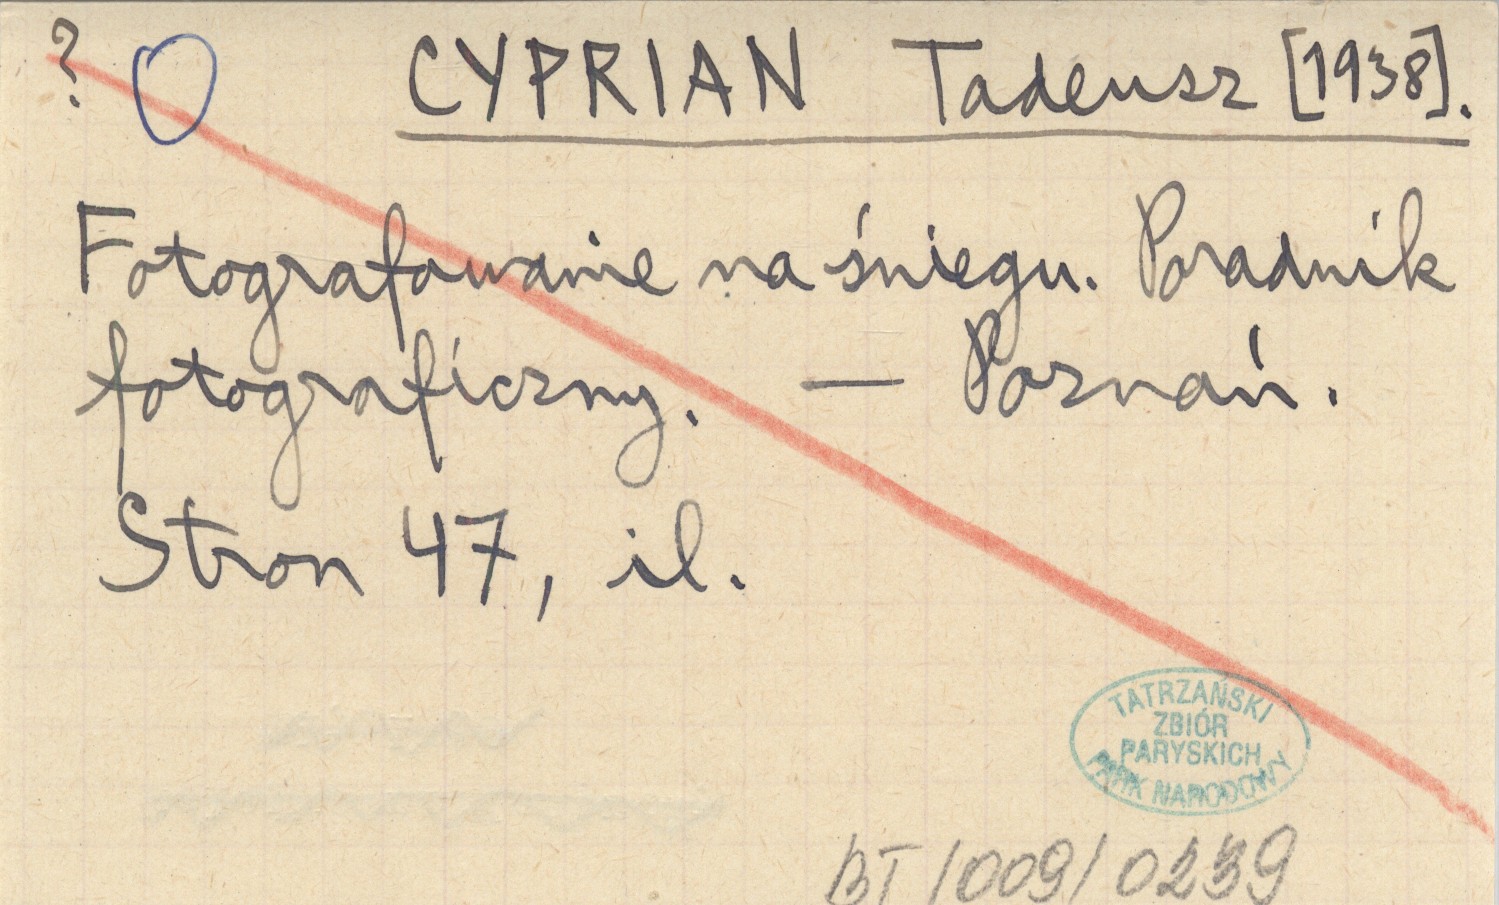 ? CYPRIAN Tadeusz [1938].
Fotografowanie na śniegu. Poradnik
fotograficzny. — Poznań.
Stron 47, il.
TATRZAŃSKI
ZBIÓR
PARYSKICH
PARK NARODOWY
BT/009/0239